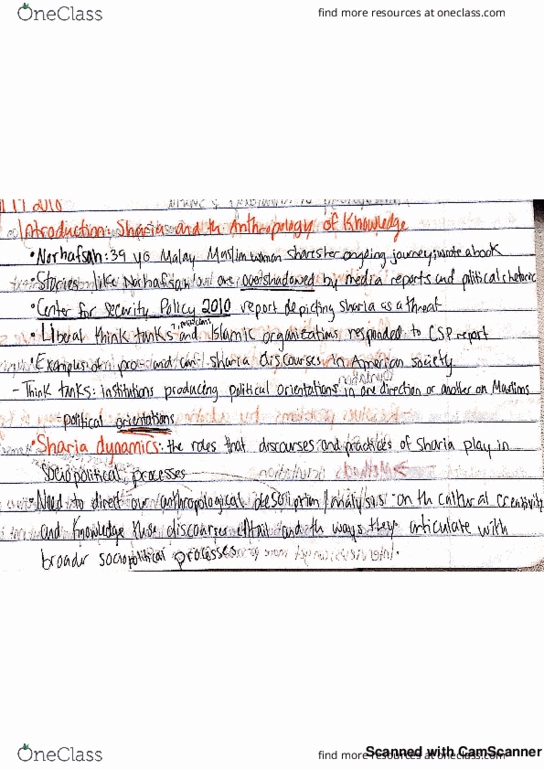 OneClass
find more resources at oneclass.com
Introduction: Sharia and th Anthropology of Knowledge
• Norhafsah: 39 yo Malay Muslim woman shares her ongoing journey; wrote a book
• Stories like Norhafsah are overshadowed by media reports and political rhetoric
• Center for Security Policy 2010 report depicting sharia as a threat
• Liberal think tanks and Islamic organizations responded to CSP report
• Example of pro and con sharia discourses in American society
- Think tanks: institutions producing political orientations in one direction or another on Muslims
- political orientations
• Sharia dynamics: the roles that discourses and practices of Sharia play in
sociopolitical processes
• Need to direct our anthropological description/analysis on th cultural creativity
and knowledge these discourses entail and th ways they articulate with
broader sociopolitical processes.
OneClass
find more resources at oneclass.com
Scanned with CamScanner